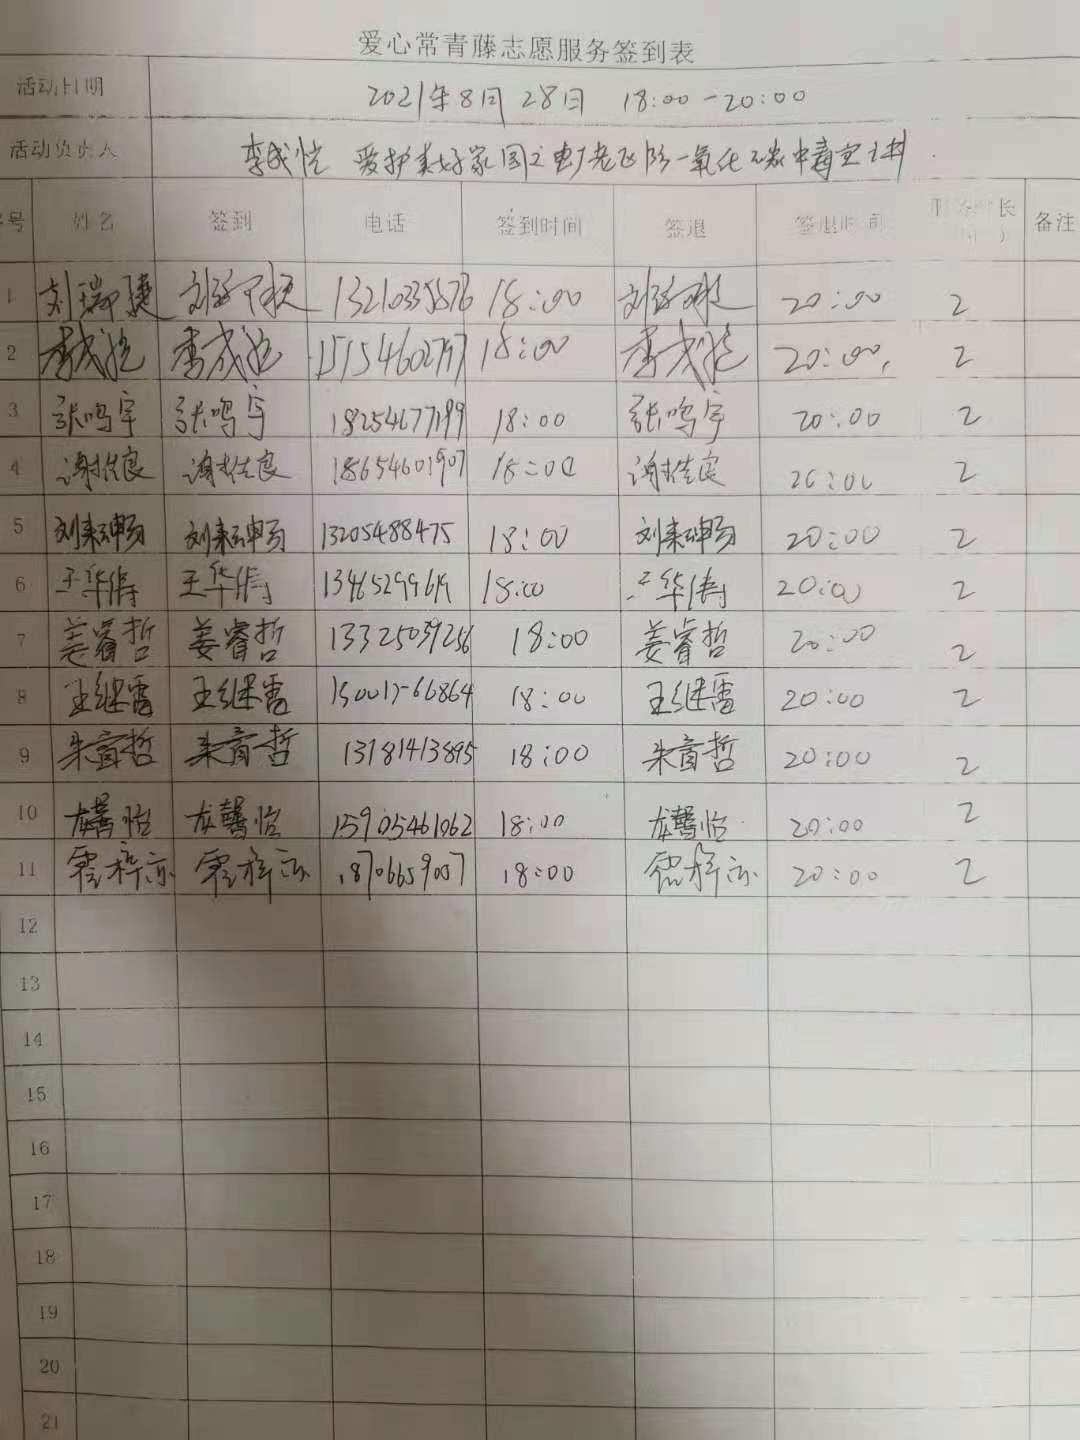 爱心常青藤志愿服务签到表
活动日期 2021年8月28日 18:00-20:00
活动负责人 李成 爱护美好家园之 一氧化碳中毒宣讲
序号 姓名 签到 电话 签到时间 签退 签退时间 时长 备注
1 刘瑞捷 刘瑞捷 13210335876 18:00 刘瑞捷 20:00 2
2 李成 李成 15154602797 18:00 李成 20:00 2
3 张鸣宇 张鸣宇 18254677199 18:00 张鸣宇 20:00 2
4 谢佳良 谢佳良 18654601907 18:00 谢佳良 20:00 2
5 刘来坤 刘来坤 13205488475 18:00 刘来坤 20:00 2
6 王华涛 王华涛 18:00 王华涛 20:00 2
7 姜睿哲 姜睿哲 13325039256 18:00 姜睿哲 20:00 2
8 王继雷 王继雷 18:00 王继雷 20:00 2
9 朱育哲 朱育哲 13181413895 18:00 朱育哲 20:00 2
10 龙馨怡 龙馨怡 15905461062 18:00 龙馨怡 20:00 2
11 18706659007 18:00 20:00 2
12
13
14
15
16
17
18
19
20
21